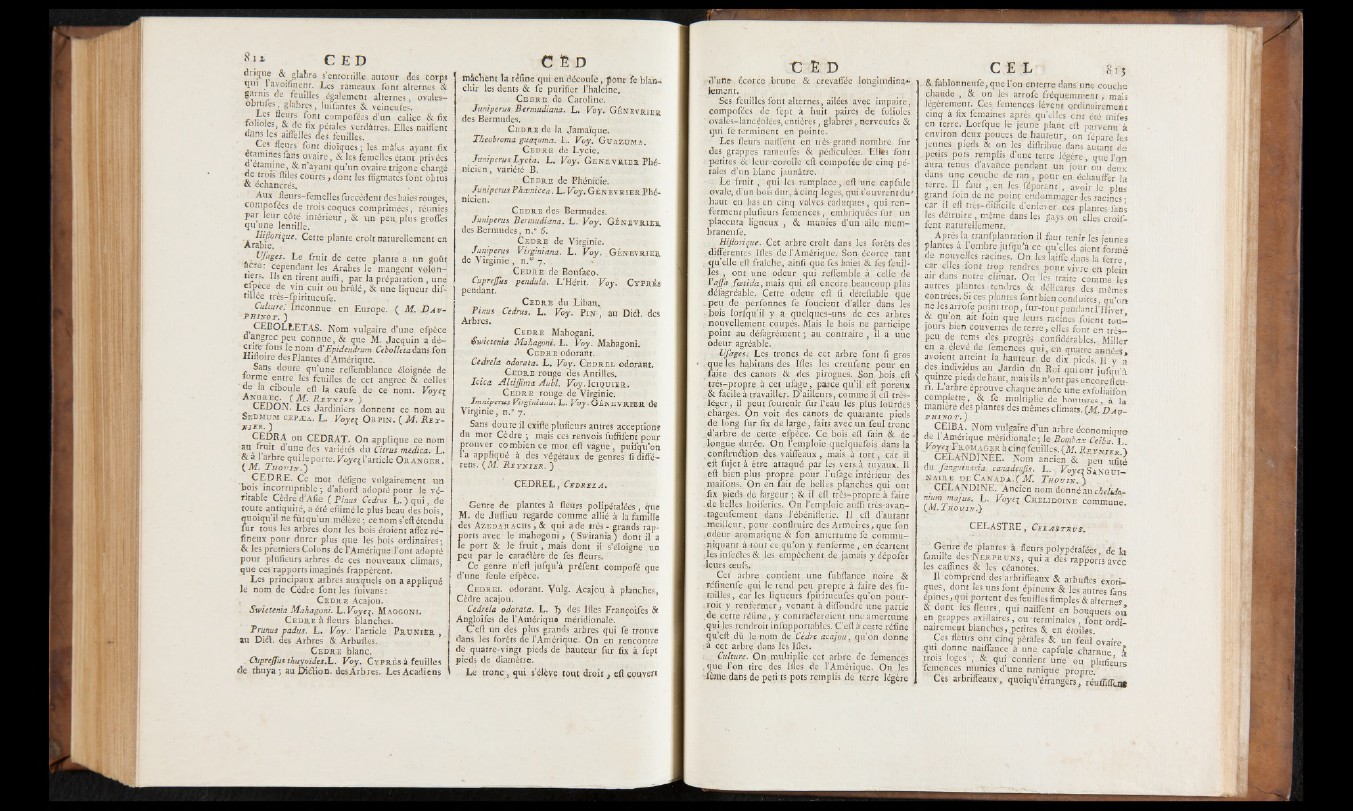 812 CED
drique & glabre s'entortille autour des corps
qui l'avoisinent. Les rameaux sont alternes &
garnis de feuilles également alternes, ovales-
obtuses, glabres, luisantes & veineuses.
Les fleurs sont composées d'un calice & six
folioles, & de six pétales verdâtres. Elles naissent
dans les aisselles des feuilles.
Ces fleurs sont dioïques; les mâles ayant six
étamines sans ovaire, & les femelles étant privées
d'étamine, & n'ayant qu'un ovaire trigone chargé
de trois stiles courts, dont les stigmates sont obtus
& échancrés.
Aux fleurs-femelles succèdent des baies rouges,
composées de trois coques comprimées, réunies
par leur côté intérieur, & un peu plus grosses
qu'une lentille.
Historique. Cette plante croît naturellement en
Arabie.
Usages. Le fruit de cette plante a un goût
âcre: cependant les Arabes le mangent volon-
tiers. Ils en tirent aussi, par la préparation, une
espèce de vin cuit ou brûlé, & une liqueur dis-
tillée très-spiritueuse.
Culture. Inconnue en Europe. ( M. DAU-
PHINOT. )
CEBOLLETAS. Nom vulgaire d'une espèce
d'angrec peu connue, & que M. Jacquin a dé-
crite sous le nom d'Epidendrum Cebolleta dans son
Histoire des Plantes d'Amérique.
Sans doute qu'une ressemblance éloignée de
forme entre les feuilles de cet angrec & celles
de la ciboule est la cause de ce nom. Voyez
ANGREC. ( M. REYNIER. )
CEDON. Les Jardiniers donnent ce nom au
SEDMUM CEPÆA. L. Voyez ORPIN. ( M. REY-
NIER. )
CEDRA ou CEDRAT. On applique ce nom
au fruit d'une des variétés du Citrus medica. L.
& à l'arbre qui le porte. Voyez l'article ORANGER.
( M. THOUIN. )
CEDRE. Ce mot désigne vulgairement un
bois incorruptible; d'abord adopté pour le vé-
ritable Cèdre d'Asie ( Pinus Cedrus L. ) qui, de
toute antiquité, a été estimé le plus beau des bois,
quoiqu'il ne fut qu'un mélèze; ce nom s'est étendu
sur tous les arbres dont les bois étoient assez ré-
sineux pour durer plus que les bois ordinaires;
& les premiers Colons de l'Amérique l'ont adopté
pour plusieurs arbres de ces nouveaux climats,
que ces rapports imaginés frappèrent.
Les principaux arbres auxquels on a appliqué
le nom de Cèdre sont les suivans:
CEDRE Acajou.
Swietenia Mahagoni. L. Voyez. MAOGONI.
CEDRE à fleurs blanches.
Prunus padus. L. Voy. l'article PRUNIER,
au Dict. des Arbres & Arbustes.
CEDRE blanc.
Cupressus thuyoides. L. Voy. CYPRÈS à feuilles
de thuya; au Diction. des Arbres. Les Acadiens
CED
mâchent la résine qui en découle, pour se blan-
chir les dents & se purifier l'haleine.
CEDRE de Caroline.
Juniperus Bermudiana. L. Voy. GÉNEVRIER
des Bermudes.
CEDRE de la Jamaïque.
Theobroma guazuma. L. Voy. GUAZUMA.
CEDRE de Lycie.
Juniperus Lycia. L. Voy. GENEVRIER Phé-
nicien, variété B.
CEDRE de Phénicie.
Juniperus Phœnicea. L. Voy. GENEVRIER Phé-
nicien.
CEDRE des Bermudes.
Juniperus Bermudiana. L. Voy. GÉNEVRIER
des Bermudes, n.° 6.
CEDRE de Virginie.
Juniperus Virginiana. L. Voy. GENEVRIER
de Virginie, n.° 7.
CEDRE de Bousaco.
Cupressus pendula. L'Hérit. Voy. CYPRÈS
pendant.
CEDRE du Liban.
Pinus Cedrus. L. Voy. PIN, au Dict. des
Arbres.
CEDRE Mahogani.
Swietenia Mahagoni. L. Voy. Mahagoni.
CEDRE odorant.
Cedrela odorata. L. Voy. CEDREL odorant.
CEDRE rouge des Antilles.
Icica Altissima Aubl. Voy. ICIQUIER.
CEDRE rouge de Virginie.
Juniperus Virginiana. L. Voy. GÉNEVRIER de
Virginie, n.° 7.
Sans doute il existe plusieurs autres acceptions
du mot Cèdre; mais ces renvois suffisent pour
prouver combien ce mot est vague, puisqu'on
l'a appliqué à des végétaux de genres si diffé-
rens. ( M. REYNIER. )
CEDREL, CEDRELA.
Genre de plantes à fleurs polipétalées, que
M. de Jussieu regarde comme allié à la famille
des AZEDARACHS, & qui a de très-grands rap-
ports avec le mahogoni, ( Swirania ) dont il a
le port & le fruit, mais dont il s'éloigne un
peu par le caractère de ses fleurs.
Ce genre n'est jusqu'à présent composé que
d'une seule espèce.
CEDREL odorant. Vulg. Acajou à planches,
Cèdre acajou.
Cedrela odorata. L. ♄ des Isles Françoises &
Angloises de l'Amérique méridionale.
C'est un des plus grands arbres qui se trouve
dans les forêts de l'Amérique. On en rencontre
de quatre-vingt pieds de hauteur sur six à sept
pieds de diamètre.
Le tronc, qui s'élève tout droit, est couvert
CED
d'une écorce brune & crevassée longitudina-
lement.
Ses feuilles sont alternes, ailées avec impaire,
composées de sept à huit paires de folioles
ovales-lancéolées, entières, glabres, nerveuses &
qui se terminent en pointe.
Les fleurs naissent en très-grand nombre sur
des grappes rameuses & pédiculées. Elles sont
petites & leur corolle est composée de cinq pé-
tales d'un blanc jaunâtre.
Le fruit, qui les remplace, est une capsule
ovale, d'un bois dur, à cinq loges, qui s'ouvrent du
haut en bas en cinq valves caduques, qui ren-
ferment plusieurs semences, embriquées sur un
placenta ligneux, & munies d'un aîle mem-
braneuse.
Historique. Cet arbre croît dans les forêts des
différentes Isles de l'Amérique. Son écorce tant
qu'elle est fraîche, ainsi que ses baies & ses feuil-
les, ont une odeur qui ressemble à celle de
l'assa fœtida, mais qui est encore beaucoup plus
désagréable. Cette odeur est si détestable que
peu de personnes se soucient d'aller dans les
bois lorsqu'il y a quelques-uns de ces arbres
nouvellement coupés. Mais le bois ne participe
point au désagrément; au contraire, il a une
odeur agréable.
Usages. Les troncs de cet arbre sont si gros
que les habitans des Isles les creusent pour en
faire des canots & des pirogues. Son bois est
très-propre à cet usage, parce qu'il est poreux
& facile à travailler. D'ailleurs, comme il est très-
léger, il peut soutenir sur l'eau les plus lourdes
charges. On voit des canots de quarante pieds
de long sur six de large, faits avec un seul tronc
d'arbre de cette espèce. Ce bois est sain & de
longue durée. On l'emploie quelquefois dans la
construction des vaisseaux, mais à tort, car il
est sujet à être attaqué par les vers à tuyaux. Il
est bien plus propre pour l'usage intérieur des
maisons. On en fait de belles planches qui ont
six pieds de largeur; & il est très-propre à faire
de belles boiseries. On l'emploie aussi très-avan-
tageusement dans l'ébénisterie. Il est d'autant
meilleur, pour construire des Armoires, que son
odeur aromatique & son amertume se commu-
niquant à tout ce qu'on y renferme, en écartent
les insectes & les empêchent de jamais y déposer
leurs œufs.
Cet arbre contient une substance noire &
résineuse qui le rend peu propre à faire des fu-
tailles, car les liqueurs spiritueuses qu'on pour-
roit y renfermer, venant à dissoudre une partie
de cette résine, y contracteroient une amertume
qui les rendroit insupportables. C'est à cette résine
qu'est dû le nom de Cèdre acajou, qu'on donne
à cet arbre dans les Isles.
Culture. On multiplie cet arbre de semences
que l'on tire des Isles de l'Amérique. On les
sème dans de petits pots remplis de terre légère
CEL 813
& sablonneuse, que l'on enterre dans une couche
chaude, & on les arrose fréquemment, mais
légèrement. Ces semences lèvent ordinairement
cinq à six semaines après qu'elles ont été mises
en terre. Lorsque le jeune plant est parvenu à
environ deux pouces de hauteur, on sépare les
jeunes pieds & on les distribue dans autant de
petits pots remplis d'une terre légère, que l'on
aura tenus d'avance pendant un jour ou deux
dans une couche de tan, pour en échauffer la
terre. Il faut, en les séparant, avoir le plus
grand soin de ne point endommager les racines;
car il est très-difficile d'enlever ces plantes sans
les détruire, même dans les pays où elles crois-
sent naturellement.
Après la transplantation il faut tenir les jeunes
plantes à l'ombre jusqu'à ce qu'elles aient formé
de nouvelles racines. On les laisse dans la serre,
car elles sont trop tendres pour vivre en plein
air dans notre climat. On les traite comme les
autres plantes tendres & délicates des mêmes
contrées. Si ces plantes sont bien conduites, qu'on
ne les arrose point trop, sur-tout pendant l'Hiver,
& qu'on ait soin que leurs racines soient tou-
jours bien couvertes de terre, elles font en très-
peu de tems des progrès considérables. Miller
en a élevé de semences qui, en quatre années,
avoient atteint la hauteur de dix pieds. Il y a
des individus au Jardin du Roi qui ont jusqu'à
quinze pieds de haut, mais ils n'ont pas encore fleu-
ri. L'arbre éprouve chaque année une exfoliation
complette, & se multiplie de boutures, à la
manière des plantes des mêmes climats. (M. DAU-
PHINOT.)
CEIBA. Nom vulgaire d'un arbre économique
de l'Amérique méridionale; le Bombax Ceiba. L.
Voyez FROMAGER à cinq feuilles. (M. REYNIER.)
CELANDINÉE. Nom ancien & peu usité
du sanguinaria canadensis. L. Voyez SANGUI-
NAIRE DE CANADA. ( M. THOUIN. )
CELANDINE. Ancien nom donné au chelido-
nium majus. L. Voyez CHELIDOINE commune.
(M. THOUIN.)
CELASTRE, CELASTRUS.
Genre de plantes à fleurs polypétalées, de la
famille des NERPRUNS, qui a des rapports avec
les cassines & les céanotes.
Il comprend des arbrisseaux & arbustes exoti-
ques, dont les uns sont épineux & les autres sans
épines, qui portent des feuilles simples & alternes,
& dont les fleurs, qui naissent en bouquets ou
en grappes axillaires, ou terminales, sont ordi-
nairement blanches, petites & en étoiles.
Ces fleurs ont cinq pétales & un seul ovaire
qui donne naissance à une capsule charnue, à
trois loges, & qui contient une ou plusieurs
semences munies d'une tunique propre.
Ces arbrisseaux, quoiqu'étrangers, réussissent